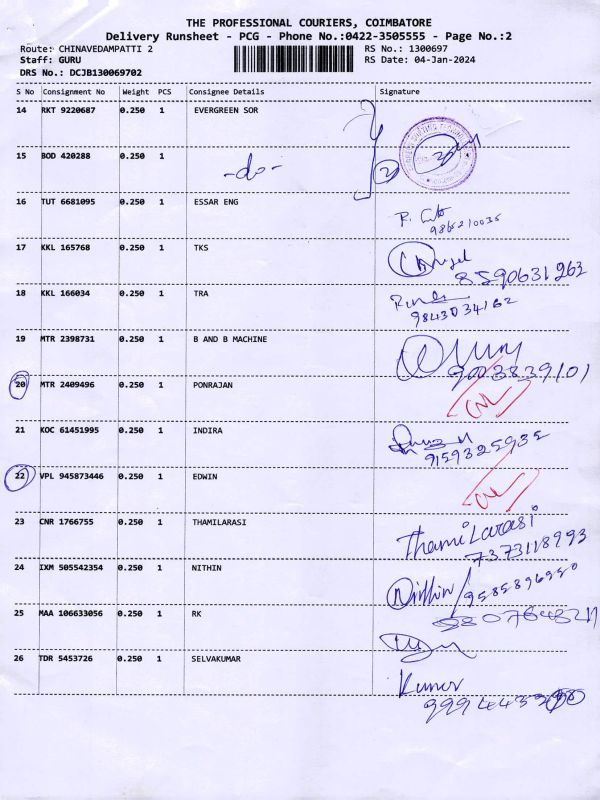 THE PROFESSIONAL COURIERS, COIMBATORE
Delivery Runsheet - PCG - Phone No.:0422-3505555 - Page No.:2
Route: CHINAVEDAMPATTI 2 RS No.: 1300697
Staff: GURU RS Date: 04-Jan-2024
DRS No.: DCJB130069702
S No Consignment No Weight PCS Consignee Details Signature
14 RKT 9220687 0.250 1 EVERGREEN SOR
15 BOD 420288 0.250 1 -do- 2
16 TUT 6681095 0.250 1 ESSAR ENG
9865210035
17 KKL 165768 0.250 1 TKS
8590631263
18 KKL 166034 0.250 1 TRA
9843034162
19 MTR 2398731 0.250 1 B AND B MACHINE
9003839101
20 MTR 2409496 0.250 1 PONRAJAN
21 KOC 61451995 0.250 1 INDIRA
9159325935
22 VPL 945873446 0.250 1 EDWIN
23 CNR 1766755 0.250 1 THAMILARASI Thamilarasi
7373118993
24 IXM 505542354 0.250 1 NITHIN Nithin/9585896950
25 MAA 106633056 0.250 1 RK
26 TDR 5453726 0.250 1 SELVAKUMAR
Kumar